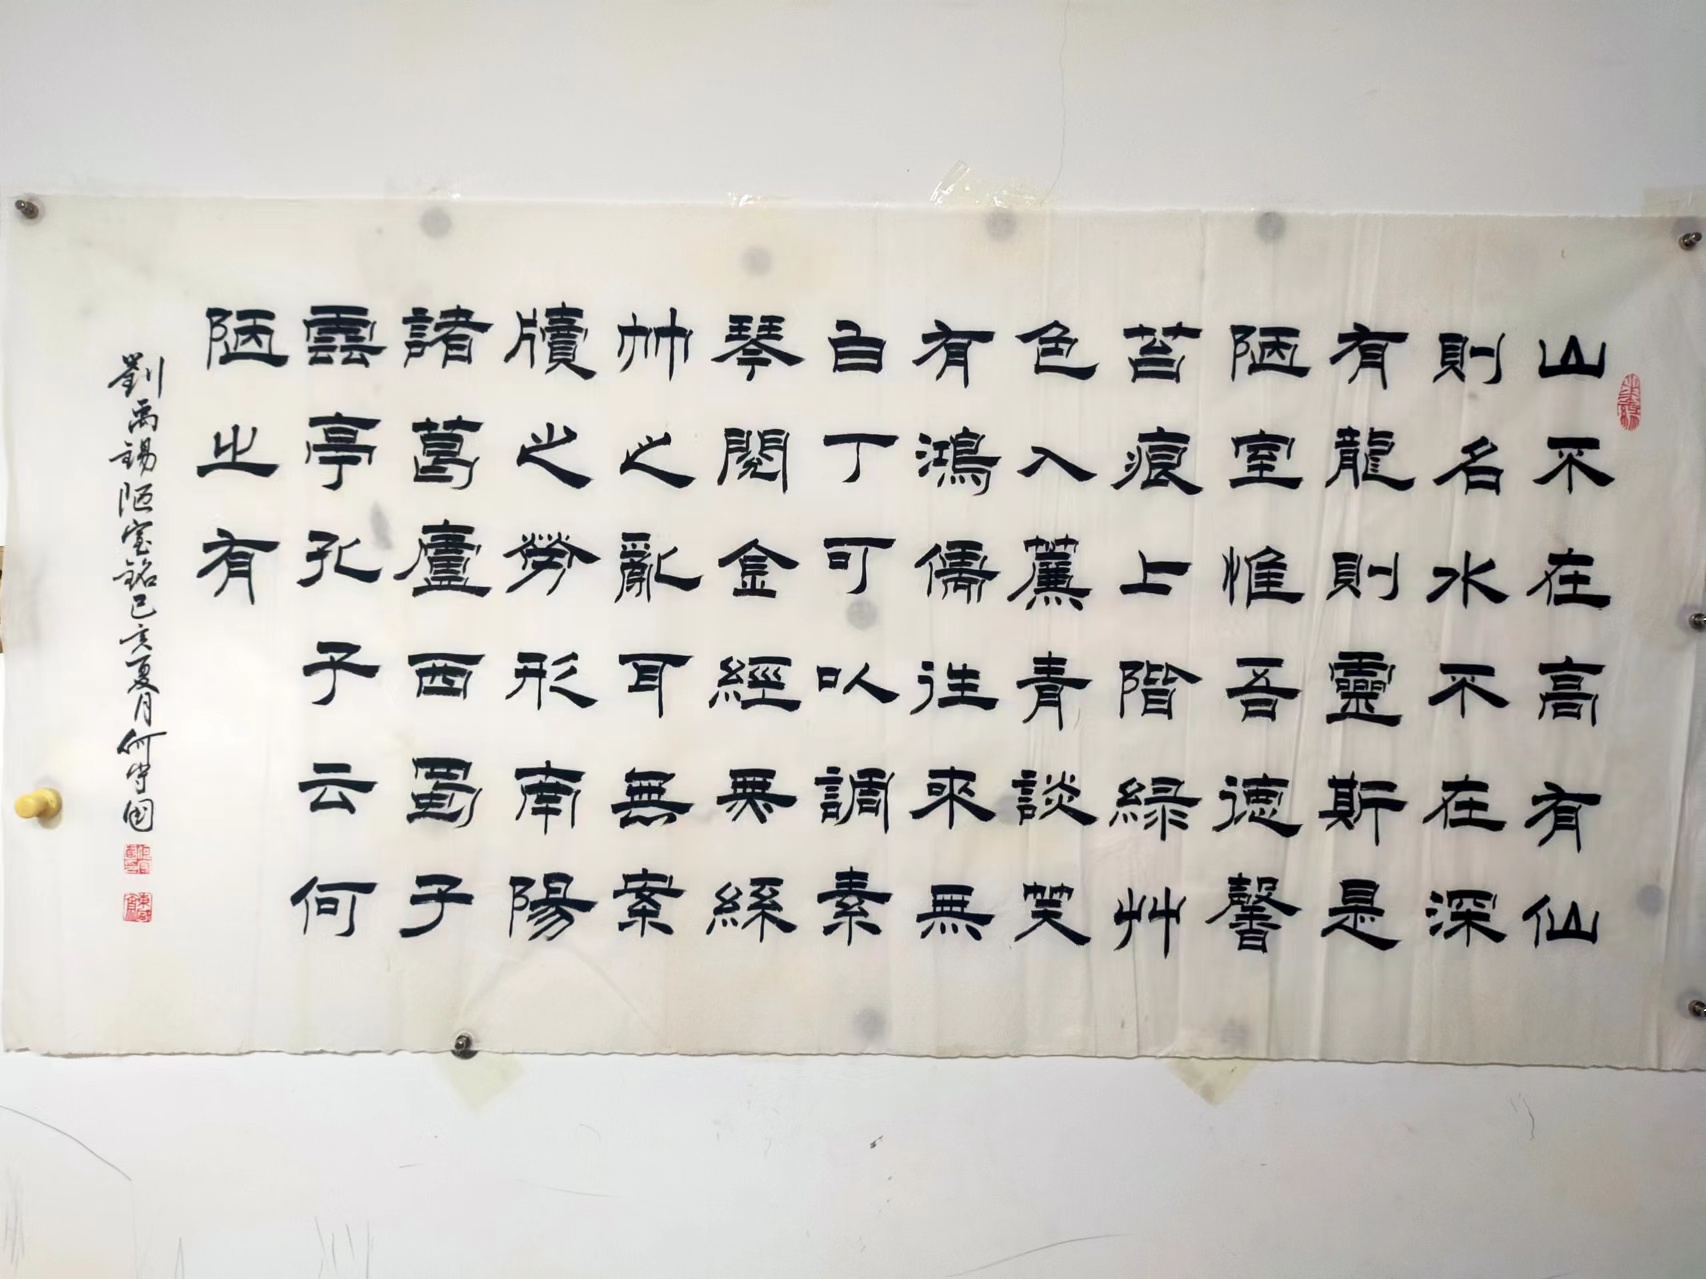 山不在高有仙
則名水不在深
有龍則靈斯是
陋室惟吾德馨
苔痕上階緑艸
色入薕青談笑
有鴻儒往來無
白丁可以調素
琴閲金經無絲
竹之亂耳無案
牘之勞形南陽
諸葛廬西蜀子
雲亭孔子云何
陋之有
劉禹錫陋室銘己亥夏月何守国